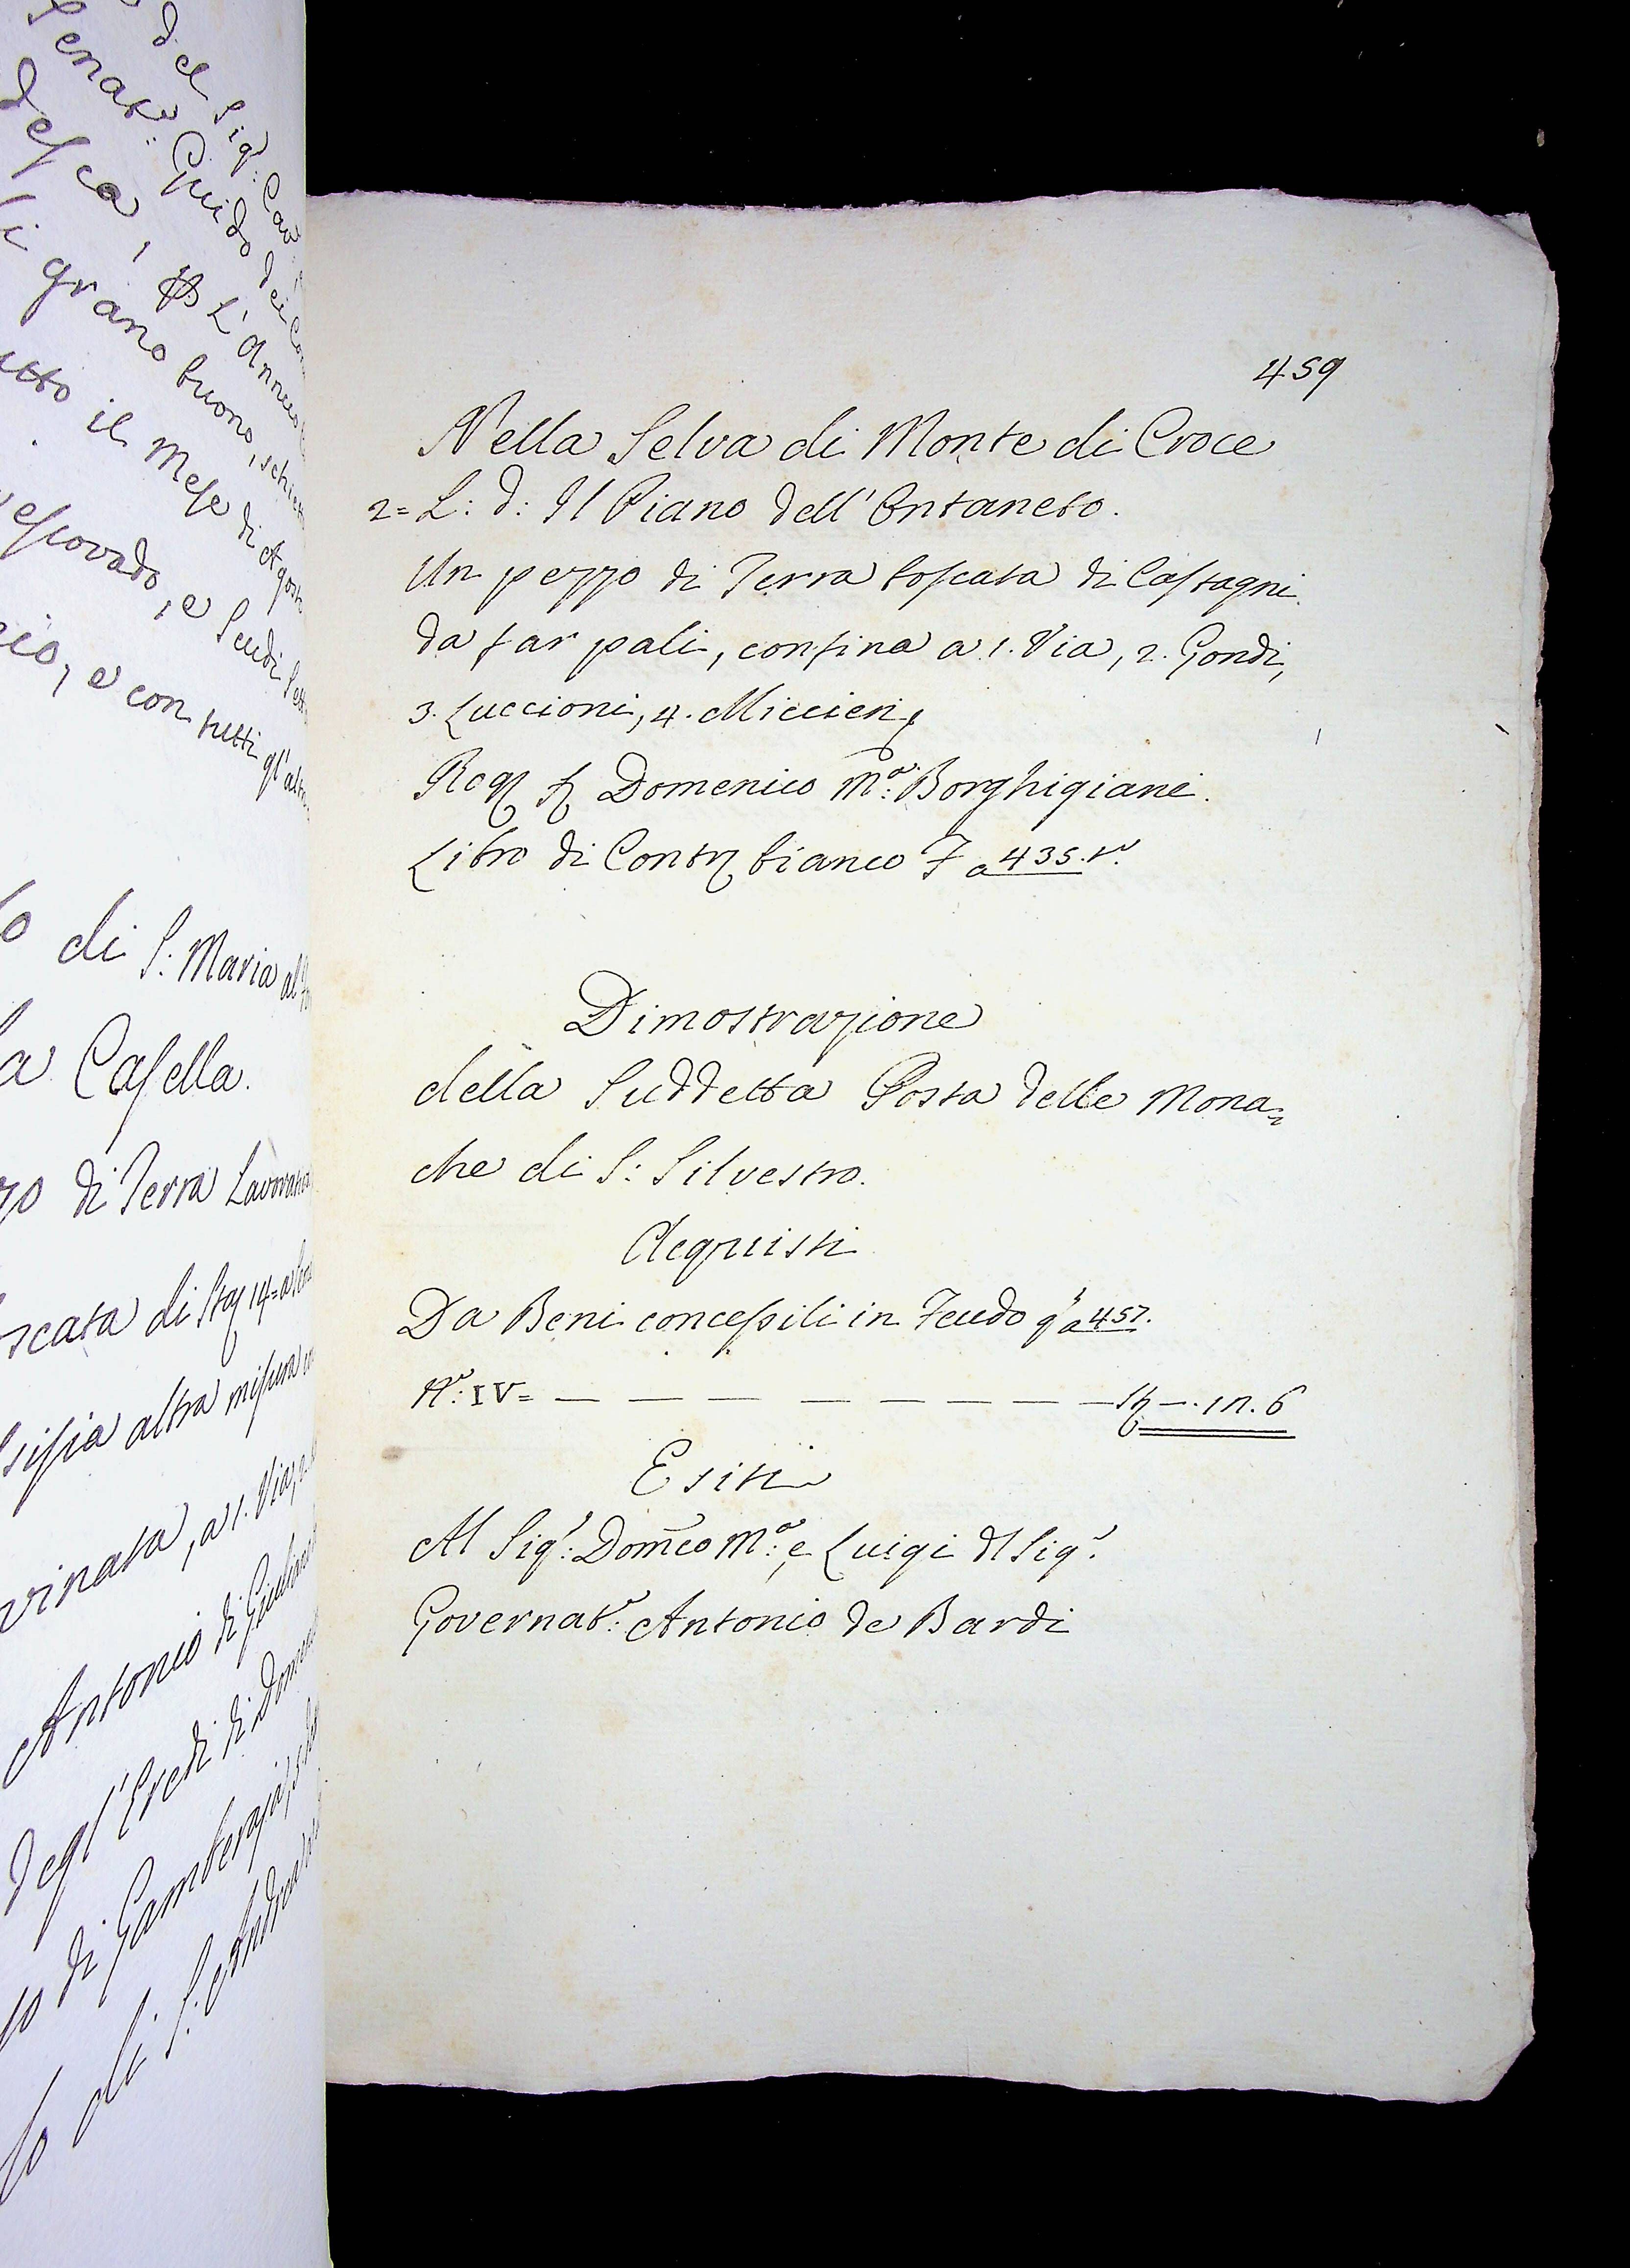 del Sig.r Cav.
Senat.r: Guido dei Con
desca, L'Annuo
di grano buono, schiet
utto il Mese di Agost
Vescovado, e Scudi Sett
zio, e con tutti gl'altr
di S: Maria al
la Casella.
zo di Terra Lavorata
oscata di Sta 14=
sisia altra misura
vinata, a 1. Via,
Antonio di Giuliano
degl'Eredi di Dome
di Gamberaja,
di S: Andrea
459
Nella Selva di Monte di Croce
2= L: d: Il Piano dell'Ontaneto.
Un pezzo di Terra boscata di Castagni
da far pali, confina a 1. Via, 2. Gondi,
3. Luccioni, 4. Miccieri,
Rog Domenico M.a: Borghigiani.
Libro di Contr bianco F a 435. t.o
Dimostrazione
della Suddetta Posta delle Mona=
che di S: Silvestro.
Acquisti
Da Beni concessili in Feudo q a 457.
N.o: IV= — — — — — — — — St —. 12. 6
Esiti
Al Sig.r: Dom̃co M.a: e Luigi dl Sig.r
Governat.r: Antonio de Bardi